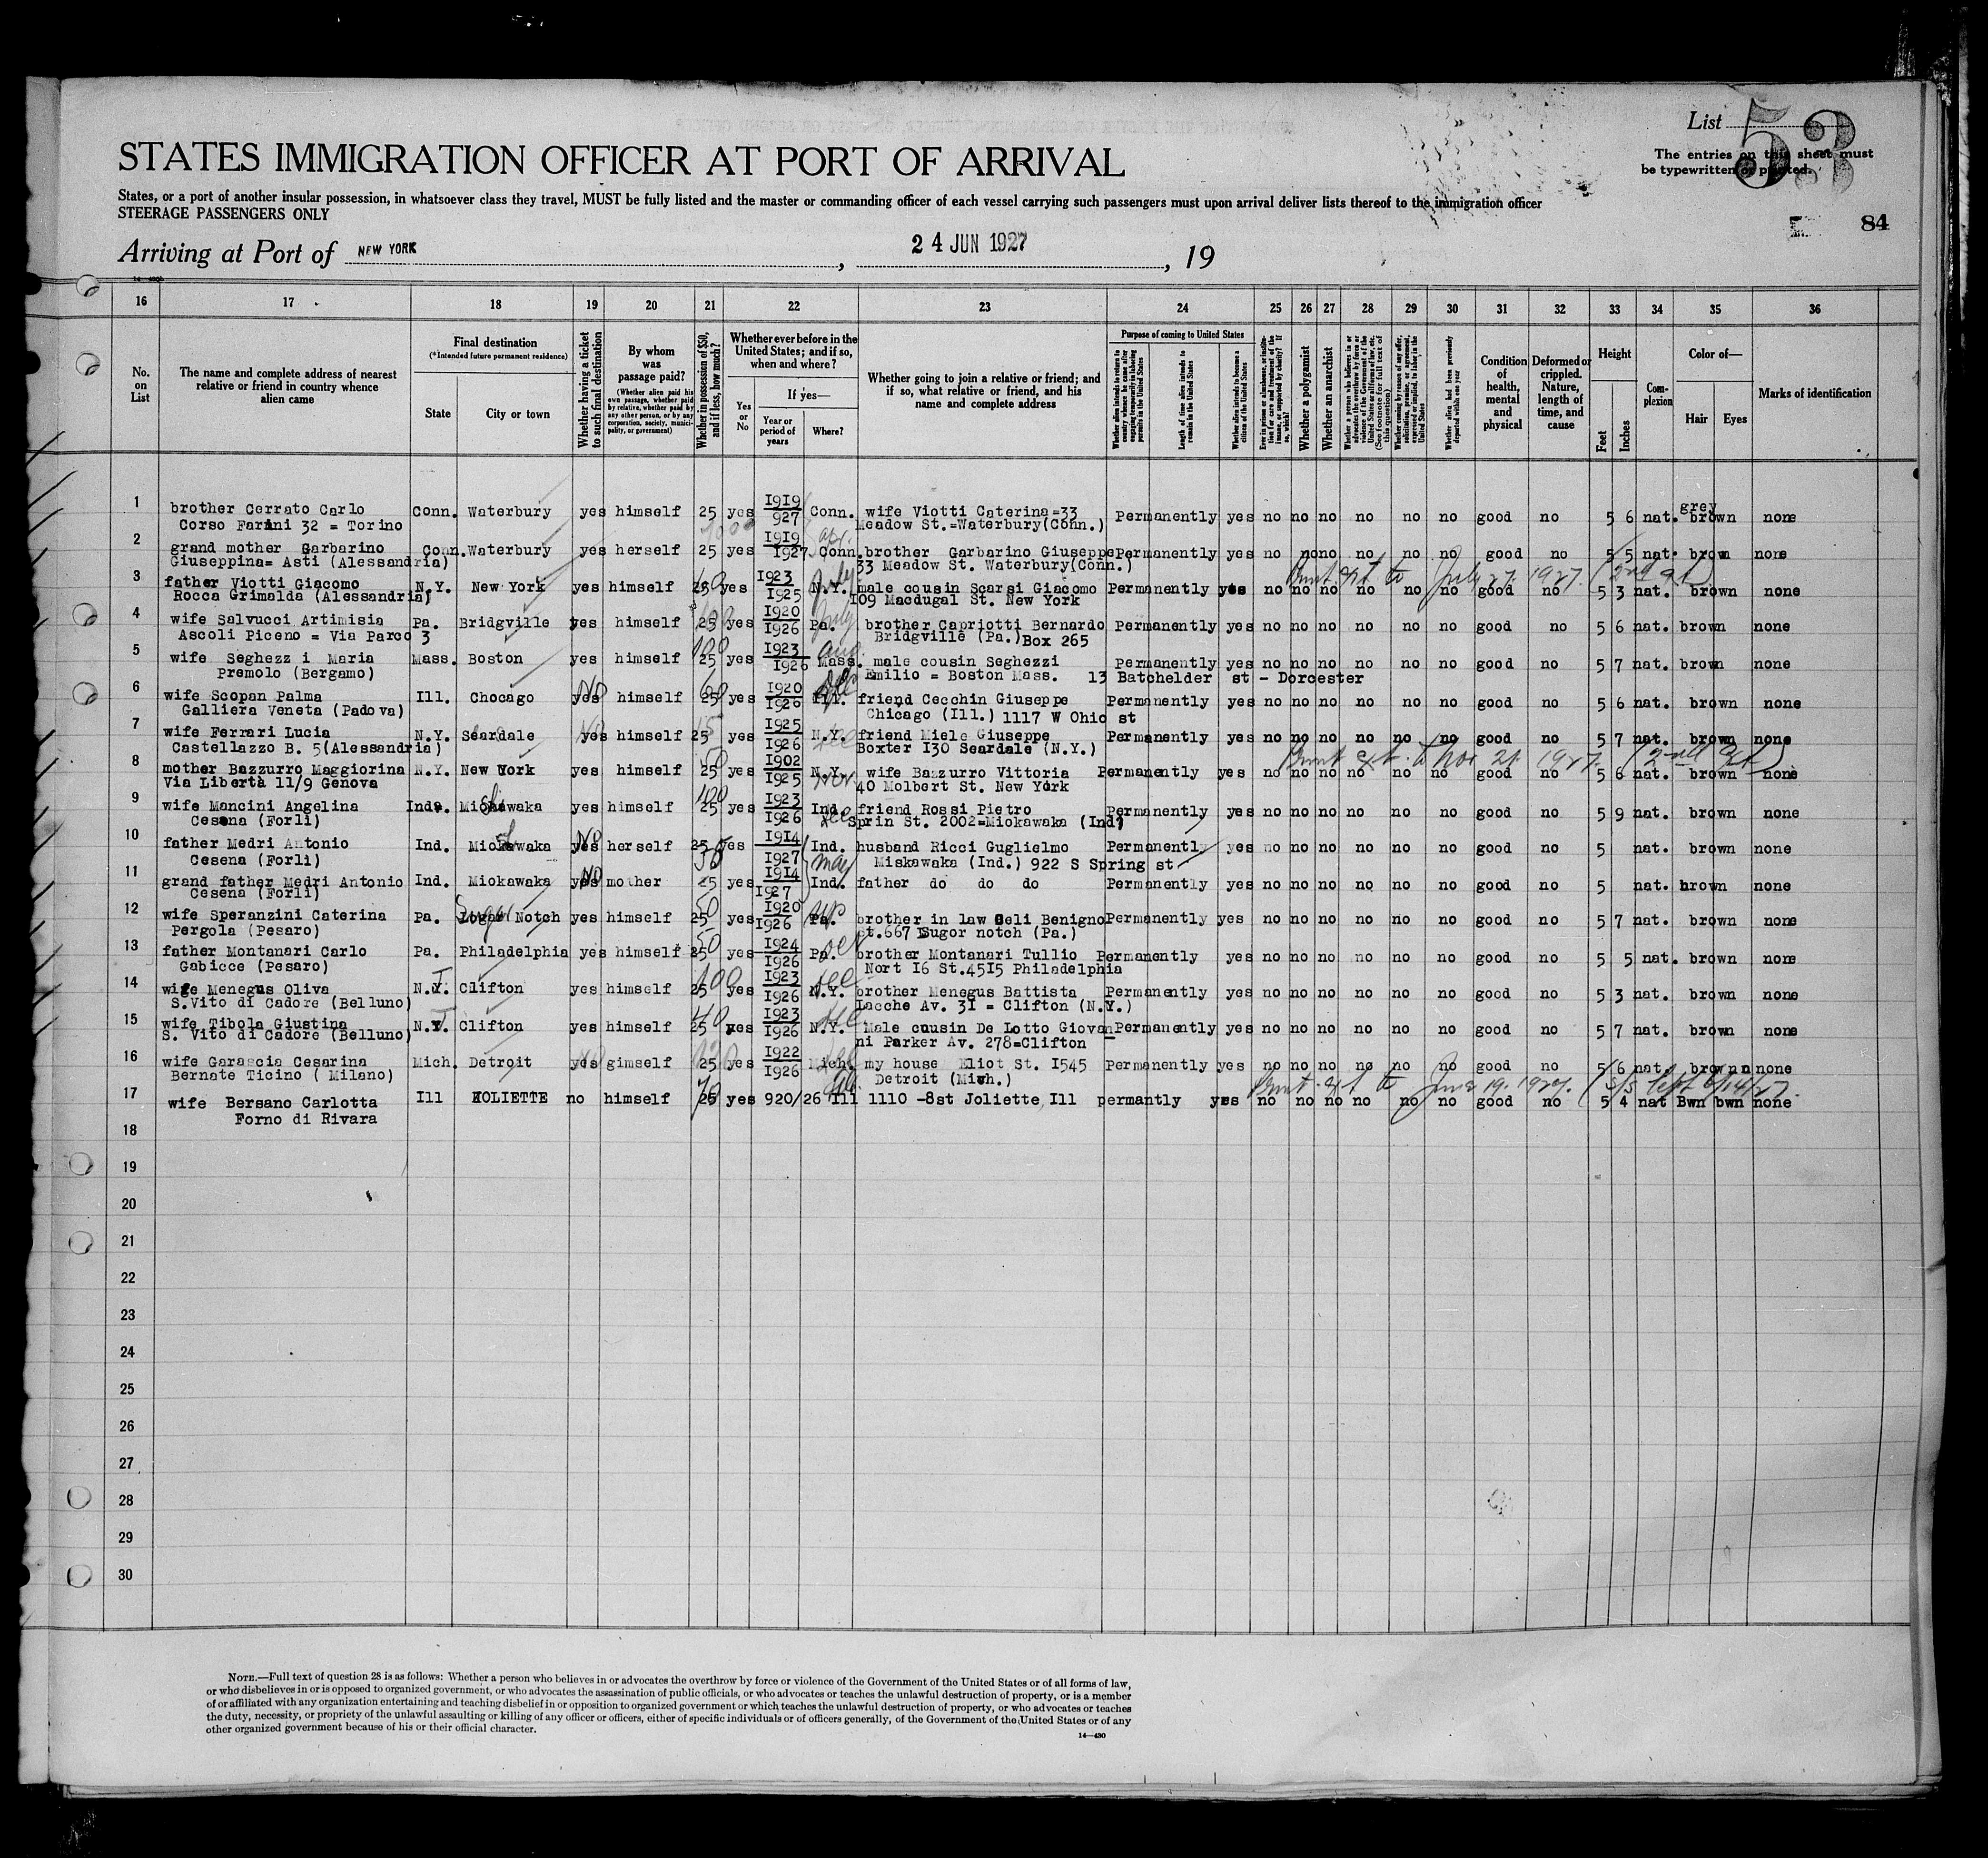 List 53
The entries on this sheet must
be typewritten or printed.
STATES IMMIGRATION OFFICER AT PORT OF ARRIVAL
States, or a port of another insular possession, in whatsoever class they travel, MUST be fully listed and the master or commanding officer of each vessel carrying such passengers must upon arrival deliver lists thereof to the immigration officer
STEERAGE PASSENGERS ONLY
84
Arriving at Port of NEW YORK, 24 JUN 1927, 19
16 17 18 19 20 21 22 23 24 25 26 27 28 29 30 31 32 33 34 35 36
No. on List
The name and complete address of nearest relative or friend in country whence alien came
Final destination
(*Intended future permanent residence)
State
City or town
Whether having a ticket to such final destination
By whom was passage paid?
(Whether alien paid his own passage, whether paid by relative, whether paid by any other person, or by any corporation, society, municipality, or government)
Whether in possession of $50, and if less, how much?
Whether ever before in the United States; and if so, when and where?
Yes or No
If yes—
Year or period of years
Where?
Whether going to join a relative or friend; and if so, what relative or friend, and his name and complete address
Purpose of coming to United States
Whether alien intends to return to country whence he came after engaging temporarily in laboring pursuits in the United States
Length of time alien intends to remain in the United States
Whether alien intends to become a citizen of the United States
Ever in prison or almshouse, or institution for care and treatment of the insane, or supported by charity? If so, which?
Whether a polygamist
Whether an anarchist
Whether a person who believes in or advocates the overthrow by force or violence of the Government of the United States or all forms of law, etc. (See footnote for full text of this question)
Whether coming by reason of any offer, solicitation, promise, or agreement, expressed or implied, to labor in the United States
Whether alien had been previously deported within one year
Condition of health, mental and physical
Deformed or crippled. Nature, length of time, and cause
Height
Feet
Inches
Complexion
Color of—
Hair
Eyes
Marks of identification
1 brother Cerrato Carlo Conn. Waterbury yes himself 25 yes 1919 927 Conn. wife Viotti Caterina=33 Permanently yes no no no no no no good no 5 6 nat. grey brown none
Corso Farini 32 = Torino Meadow St.=Waterbury(Conn.)
2 grand mother Garbarino Conn. Waterbury yes herself 25 yes 1919 1927 Conn. brother Garbarino Giuseppe Permanently yes no no no no no no good no 5 5 nat. brown none
Giuseppina= Asti (Alessandria) 33 Meadow St. Waterbury(Conn.)
Permt ext to July 27. 1927. (2nd ext)
3 father Viotti Giacomo N.Y. New York yes himself 25 yes 1923 1925 N.Y. male cousin Scarsi Giacomo Permanently yes no no no no no no good no 5 3 nat. brown none
Rocca Grimalda (Alessandria) 109 Macdugal St. New York
4 wife Salvucci Artimisia Pa. Bridgville yes himself 25 yes 1920 1926 July Pa. brother Capriotti Bernardo Permanently yes no no no no no no good no 5 6 nat. brown none
Ascoli Piceno = Via Parco 3 Bridgville (Pa.)Box 265
5 wife Seghezz i Maria Mass. Boston yes himself 100 25 yes 1923 1926 Aug. Mass. male cousin Seghezzi Permanently yes no no no no no no good no 5 7 nat. brown none
Premolo (Bergamo) Emilio = Boston Mass. 13 Batchelder st - Dorcester
6 wife Scopan Palma Ill. Chocago No yes himself 60 25 yes 1920 1926 Ill. friend Cecchin Giuseppe Permanently yes no no no no no no good no 5 6 nat. brown none
Galliera Veneta (Padova) Chicago (Ill.) 1117 W Ohio st
7 wife Ferrari Lucia N.Y. Seardale yes himself 25 yes 1925 1926 Dec N.Y. friend Miele Giuseppe Permanently yes no no no no no no good no 5 7 nat. brown none
Castellazzo B. 5(Alessandria) Boxter 130 Seardale (N.Y.)
Permt ext. to Nov 21. 1927. (2nd Ext)
8 mother Bazzurro Maggiorina N.Y. New York yes himself 50 25 yes 1902 1925 Nov N.Y. wife Bazzurro Vittoria Permanently yes no no no no no no good no 5 6 nat. brown none
Via Libertà 11/9 Genova 40 Molbert St. New York
9 wife Mancini Angelina Ind. Miokawaka yes himself 100 25 yes 1923 1926 Dec Ind. friend Rossi Pietro Permanently yes no no no no no no good no 5 9 nat. brown none
Cesena (Forli) Sprin St. 2002=Miokawaka (Ind)
10 father Medri Antonio Ind. Miokawaka No yes herself 25 yes 1914 1927 May Ind. husband Ricci Guglielmo Permanently yes no no no no no no good no 5 nat. brown none
Cesena (Forli) Miskawaka (Ind.) 922 S Spring st
11 grand father Medri Antonio Ind. Miokawaka No yes mother 25 yes 1914 1927 Ind. father do do do Permanently yes no no no no no no good no 5 nat. brown none
Cesena (Forli)
12 wife Speranzini Caterina Pa. Sugar Notch yes himself 50 25 yes 1920 1926 Pa. brother in law Geli Benigno Permanently yes no no no no no no good no 5 7 nat. brown none
Pergola (Pesaro) st.667 Sugor notch (Pa.)
13 father Montanari Carlo Pa. Philadelphia yes himself 50 25 yes 1924 1926 Oct Pa. brother Montanari Tullio Permanently yes no no no no no no good no 5 5 nat. brown none
Gabicce (Pesaro) Nort 16 St.4515 Philadelphia
14 wife Menegus Oliva N.Y. Clifton yes himself 100 25 yes 1923 1926 Dec N.Y. brother Menegus Battista Permanently yes no no no no no no good no 5 3 nat. brown none
S.Vito di Cadore (Belluno) Lacche Av. 31 = Clifton (N.Y.)
15 wife Tibola Giustina N.Y. Clifton yes himself 40 25 yes 1923 1926 Dec N.Y. Male causin De Lotto Giovan Permanently yes no no no no no no good no 5 7 nat. brown none
S. Vito di Cadore (Belluno) ni Parker Av. 278=Clifton
16 wife Garascia Cesarina Mich. Detroit yes gimself 25 yes 1922 1926 Mich. my house Eliot St. 1545 Permanently yes no no no no no no good no 5 6 nat. brown none
Bernate Ticino ( Milano) Detroit (Mich.)
Permt ext to
17 wife Bersano Carlotta Ill JOLIETTE no himself 70 25 yes 920/26 Ill 1110 -8st Joliette Ill permantly yes no no no no no no good no 5 4 nat Bwn bwn none
Forno di Rivara
18
19
20
21
22
23
24
25
26
27
28
29
30
NOTE.—Full text of question 28 is as follows: Whether a person who believes in or advocates the overthrow by force or violence of the Government of the United States or of all forms of law,
or who disbelieves in or is opposed to organized government, or who advocates the assassination of public officials, or who advocates or teaches the unlawful destruction of property, or is a member
of or affiliated with any organization entertaining and teaching disbelief in or opposition to organized government or which teaches the unlawful destruction of property, or who advocates or teaches
the duty, necessity, or propriety of the unlawful assaulting or killing of any officer or officers, either of specific individuals or of officers generally, of the Government of the United States or of any
other organized government because of his or their official character.
14—430